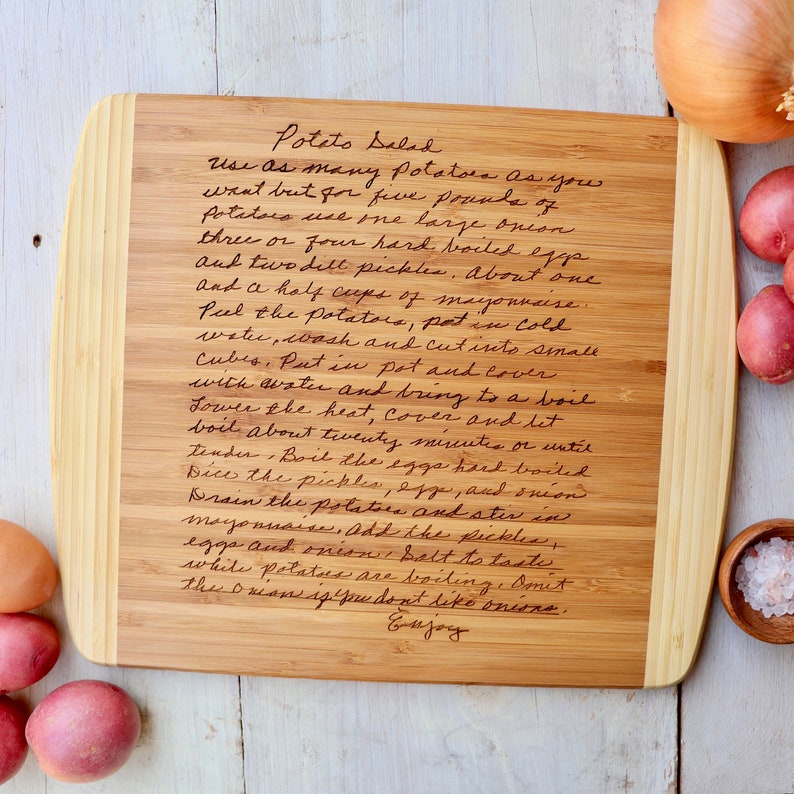 Potato Salad
Use as many potatoes as you
want but for five pounds of
potatoes use one large onion
three or four hard boiled eggs
and two dill pickles. About one
and a half cups of mayonnaise.
Peel the potatoes, put in cold
water, wash and cut into small
cubes. Put in pot and cover
with water and bring to a boil
Lower the heat, cover and let
boil about twenty minutes or until
tender. Boil the eggs hard boiled
Dice the pickles, egg, and onion
Drain the potatoes and stir in
mayonnaise. Add the pickles,
eggs and onion. Salt to taste
while potatoes are boiling. Omit
the onion if you dont like onions.
Enjoy